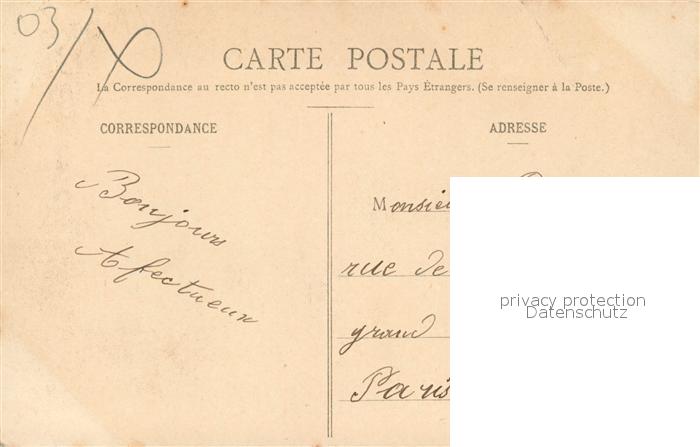 03/X
CARTE POSTALE
La Correspondance au recto n'est pas acceptée par tous les Pays Étrangers. (Se renseigner à la Poste.)
CORRESPONDANCE
ADRESSE
Bonjours
Afectueux
Monsieu
rue de
grand
Paris
privacy protection
Datenschutz